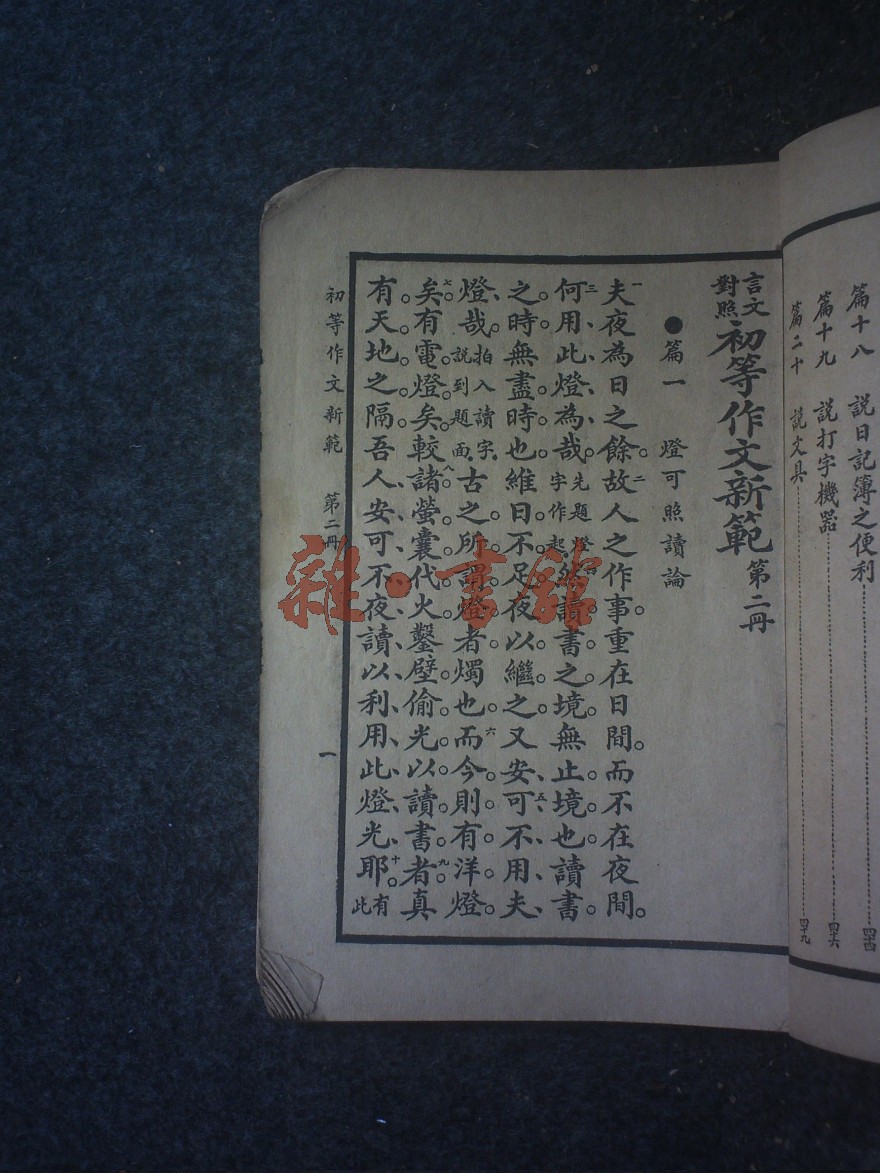 篇十八　說日記簿之便利……四十四
篇十九　說打字機器……四十六
篇二十　說文具……四十九
言文對照初等作文新範第二冊
●篇一　燈可照讀論
一夫夜為日之餘。二故人之作事。重在日間。而不在夜間。
三何用此燈為哉。先題燈字作起然讀書之境。無止境也。讀書
之時。無盡時也。維日不足。夜以繼之。又安五可不用夫
燈哉。拍入讀字說到題面古之所謂燈者。燭也。六而今則有洋燈
七矣。有電燈矣。八較諸螢囊代火。鑿壁偷光以讀書者。九真
有天地之隔。吾人安可不夜讀以利用此燈光耶。十有此
初等作文新範　第二冊　一
雜·書館